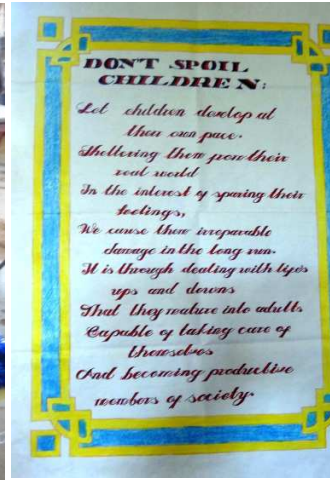 DON'T SPOIL
CHILDREN:
Let children develop at
their own pace.
Sheltering them from their
real world
In the interest of sparing their
feelings,
We cause them irreparable
damage in the long run.
It is through dealing with life's
ups and downs
That they mature into adults
Capable of taking care of
themselves
And becoming productive
members of society.